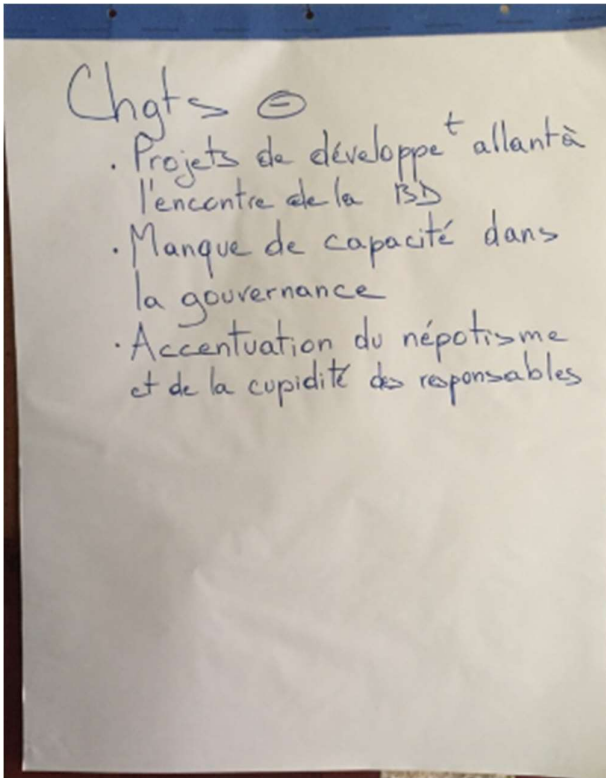 Chgts ⊖
. Projets de développet allant à
l'encontre de la BD
. Manque de capacité dans
la gouvernance
. Accentuation du népotisme
et de la cupidité des responsables